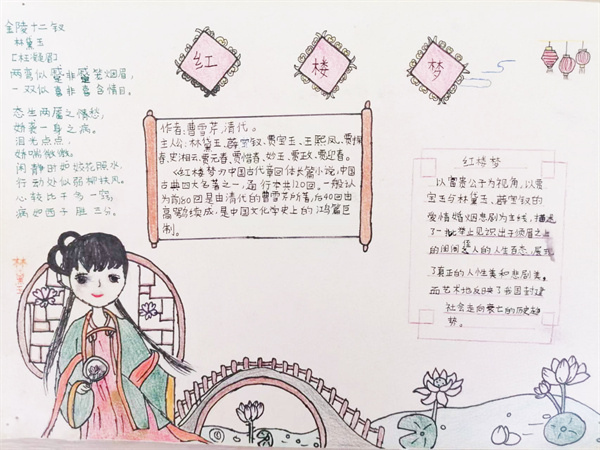 金陵十二钗
林黛玉
[枉凝眉]
两弯似蹙非蹙笼烟眉,
一双似喜非喜含情目。
态生两靥之愁,
娇袭一身之病。
泪光点点,
娇喘微微。
闲静时如姣花照水,
行动处似弱柳扶风。
心较比干多一窍,
病如西子胜三分。
林黛玉
红 楼 梦
作者:曹雪芹,清代。
主人公:林黛玉、薛宝钗、贾宝玉、王熙凤、贾探
春,史湘云、贾元春、贾惜春、妙玉、贾政、贾迎春。
《红楼梦》为中国古代章回体长篇小说,中国
古典四大名著之一,通行本共120回。一般认
为前80回是由清代的曹雪芹所著,后40回由
高鹗续成,是中国文化学史上的鸿篇巨
制。
红楼梦
以富贵公子为视角,以贾
宝玉与林黛玉、薛宝钗的
爱情婚烟悲剧为主线,描述
了一批举止见识出于须眉之上
的闺阁佳人的人生百态,展现
了真正的人性美和悲剧美,
而艺术地反映了我国封建
社会走向衰亡的历史趋
势。